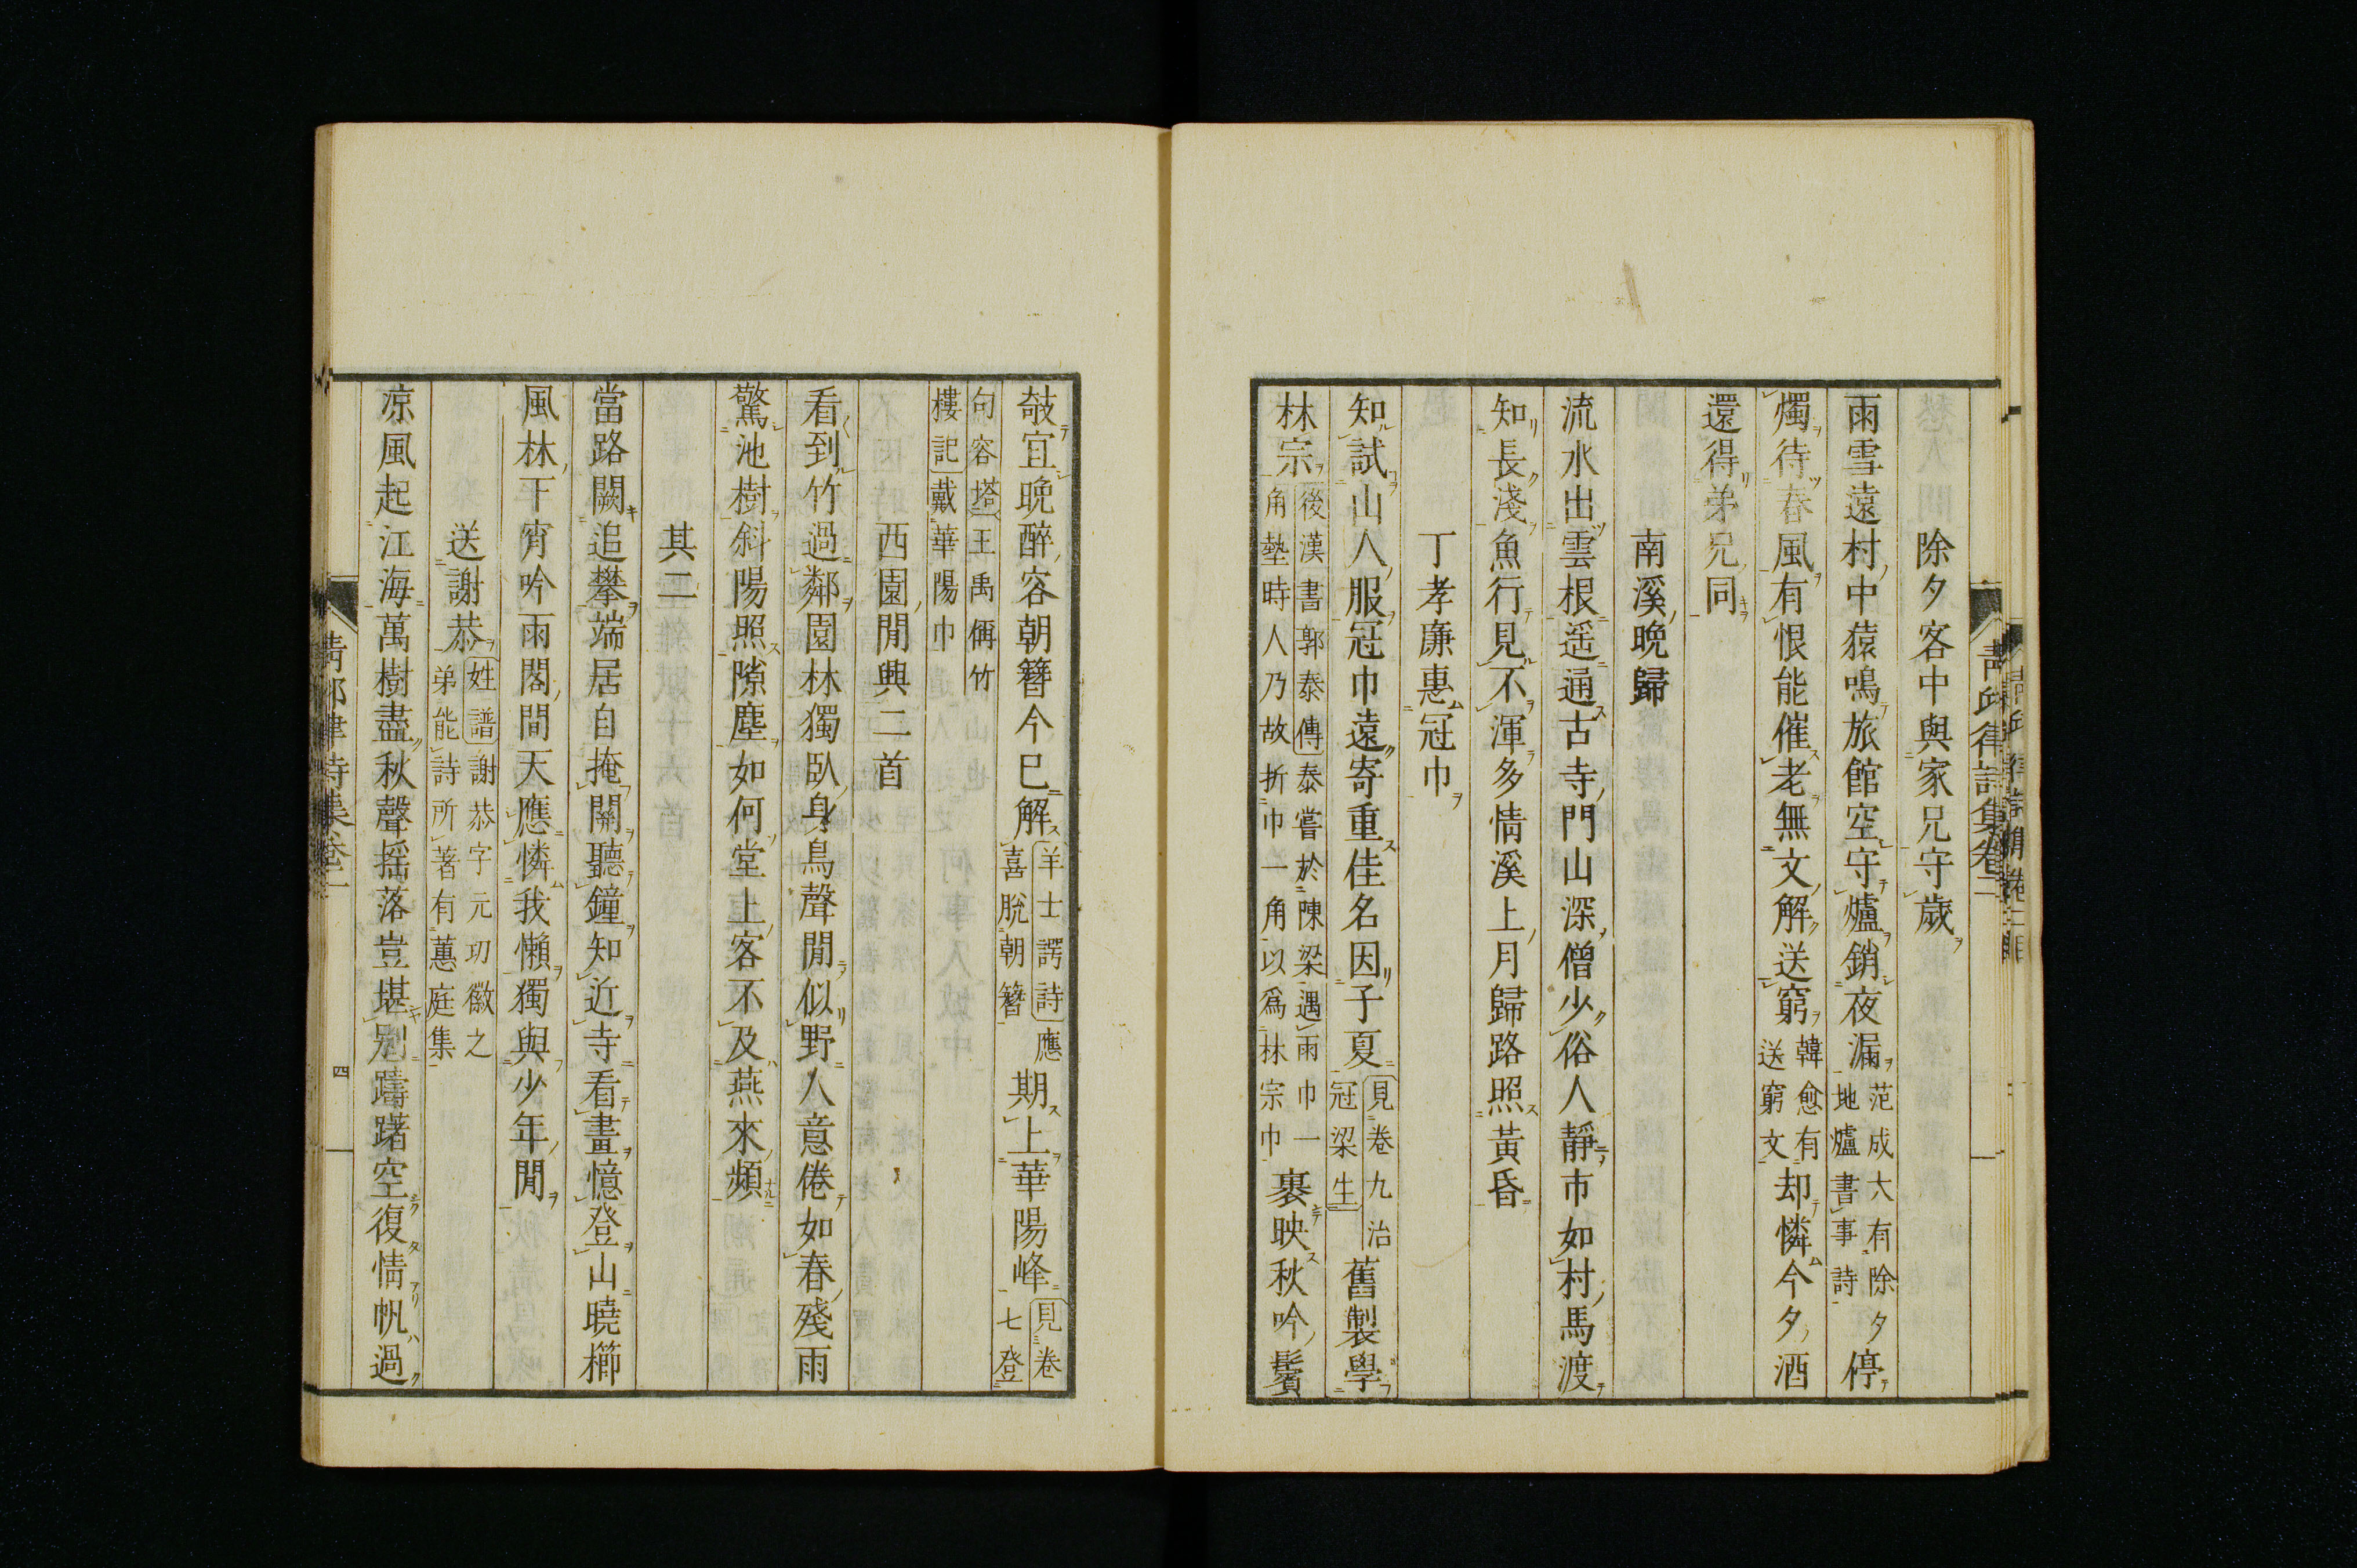 除夕客中與家兄守歲
雨雪遠村中猿鳴旅館空守爐銷夜漏范成大有除夕地爐書事詩停
燭待春風有恨能催老無文解送窮韓愈有送窮文却憐今夕酒
還得弟兄同
南溪晚歸
流水出雲根遥通古寺門山深僧少俗人靜市如村馬渡
知長淺魚行見不渾多情溪上月歸路照黃昏
丁孝廉惠冠巾
知試山人服冠巾遠寄重佳名因子夏見卷九治冠梁生舊製學
林宗後漢書郭泰傳泰嘗於陳梁遇雨巾一角墊時人乃故折巾一角以爲林宗巾裹映秋吟鬢
攲宜晚醉容朝簪今已解羊士諤詩應喜脫朝簪期上華陽峰見卷七登
句容塔王禹偁竹樓記戴華陽巾
西園閒興二首
看到竹過鄰園林獨臥身鳥聲閒似野人意倦如春殘雨
驚池樹斜陽照隙塵如何堂上客不及燕來頻
其二
當路闕追攀端居自掩關聽鐘知近寺看畫憶登山曉櫛
風林下宵吟雨閣間天應憐我懶獨與少年閒
送謝恭姓譜謝恭字元功徽之弟能詩所著有蕙庭集
凉風起江海萬樹盡秋聲搖落豈堪別躊躇空復情帆過
青邱律詩集卷二
四